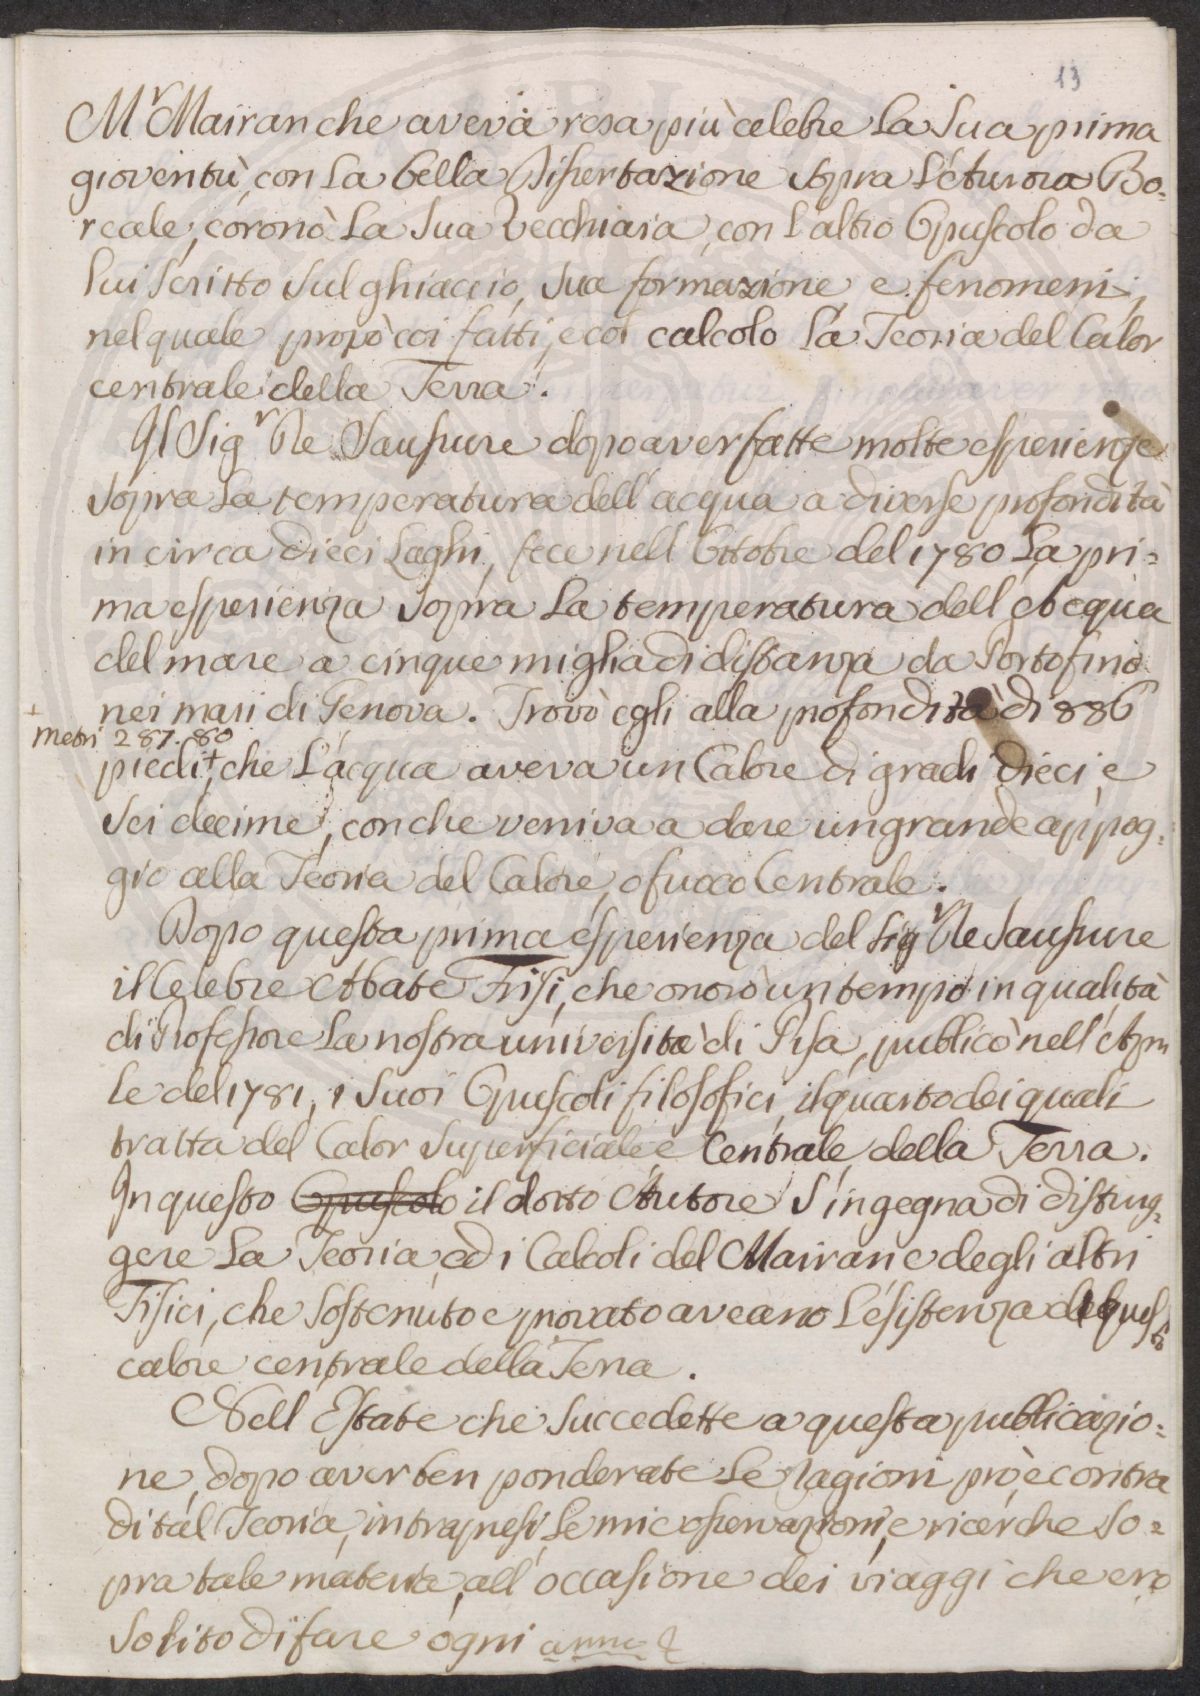 13
Mr Mairan che aveva resa più celebre la sua prima
gioventù con la bella Dissertazione sopra l'Aurora Bo=
reale, coronò la sua Vecchiaia con l'altro Opuscolo da
lui scritto sul ghiaccio, sua formazione e fenomeni,
nel quale provò coi fatti, e col calcolo la Teoria del Calor
centrale della Terra.
Il Sigr De Saussure dopo aver fatte molte esperienze
sopra la temperatura dell'acqua a diverse profondità
in circa dieci Laghi, fece nell'Ottobre del 1780 la pri=
ma esperienza sopra la temperatura dell'Acqua
del mare a cinque miglia di distanza da Portofino
nei mari di Genova. Trovò egli alla profondità di 886
+
metri 287.80
piedi+, che l'acqua aveva un Calore di gradi dieci, e
sei decime, con che veniva a dare un grande appog=
gio alla Teoria del Calore, o fuoco Centrale.
Dopo questa prima esperienza del Sigr De Saussure
il Celebre Abate Frisi, che onorò un tempo in qualità
di Professore la nostra università di Pisa, pubblicò nell'Apri
le del 1781, i suoi Opuscoli filosofici, il quarto dei quali
tratta del Calor superficiale e Centrale della Terra.
In questo Opuscolo il dotto Autore s'ingegna di distrug=
gere la Teoria, ed i Calcoli del Mairan e degli altri
Fisici, che sostenuto e provato aveano l'esistenza di questo
calore centrale della Terra.
Nell'Estate che succedette a questa pubblicazio=
ne, dopo aver ben ponderate le ragioni prò, e contra
di tal Teoria, intrapresi le mie osservazioni, e ricerche so=
pra tale materia, all'occasione dei viaggi che ero
solito di fare ogni anno